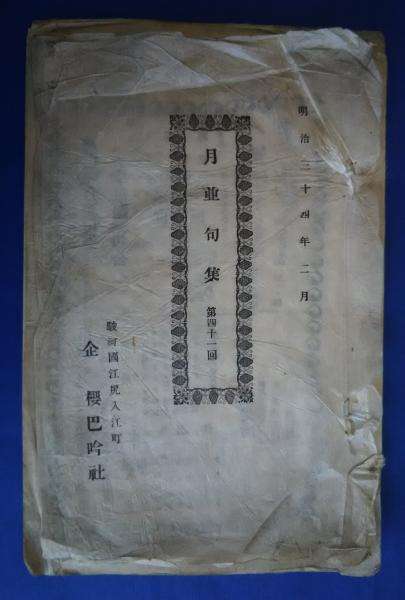 明治二十四年二月
月並句集 第四十一回
駿河國江尻入江町
企 櫻巴吟社